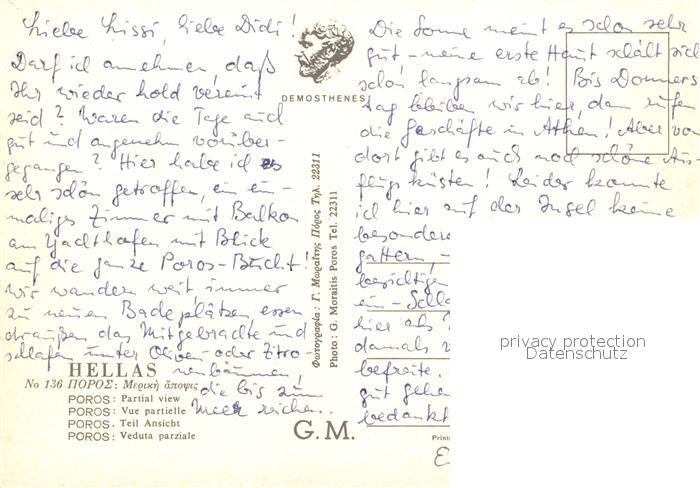 Liebe Lissi, liebe Didi!
Darf ich annehmen, daß
Ihr wieder hold vereint
seid? Waren die Tage auch
gut und angenehm vorüber-
gegangen? Hier habe ich es
sehr schön getroffen, ein ein-
maliges Zimmer mit Balkon
am Yachthafen mit Blick
auf die ganze Poros-Bucht!
Wir wandern weit, immer
zu neuen Badeplätzen, essen
draußen das Mitgebrachte und
schlafen unter Oliven- oder Zitro-
nenbäumen,
die bis zum
Meer reichen.
Die Sonne meint es schon sehr
gut - meine erste Haut schält sich
schon langsam ab! Bis Donners
tag bleiben wir hier, dann rufen
die Geschäfte in Athen! Aber vo
dort gibt es auch noch schöne Aus-
flugsküsten! Leider konnte
ich hier auf der Insel keine
besondere
gattern, -
besichtigen
ein - Schla
hier als
damals v
befreite.
gut gehen
bedankt
DEMOSTHENES
Φωτογραφία: Γ. Μωραΐτης Πόρος Τηλ. 22311
Photo: G. Moraitis Poros Tel. 22311
HELLAS
No 136 ΠΟΡΟΣ: Μερική ἄποψις
POROS: Partial view
POROS: Vue partielle
POROS. Teil Ansicht
POROS: Veduta parziale
G.M.
Printe
privacy protection
Datenschutz